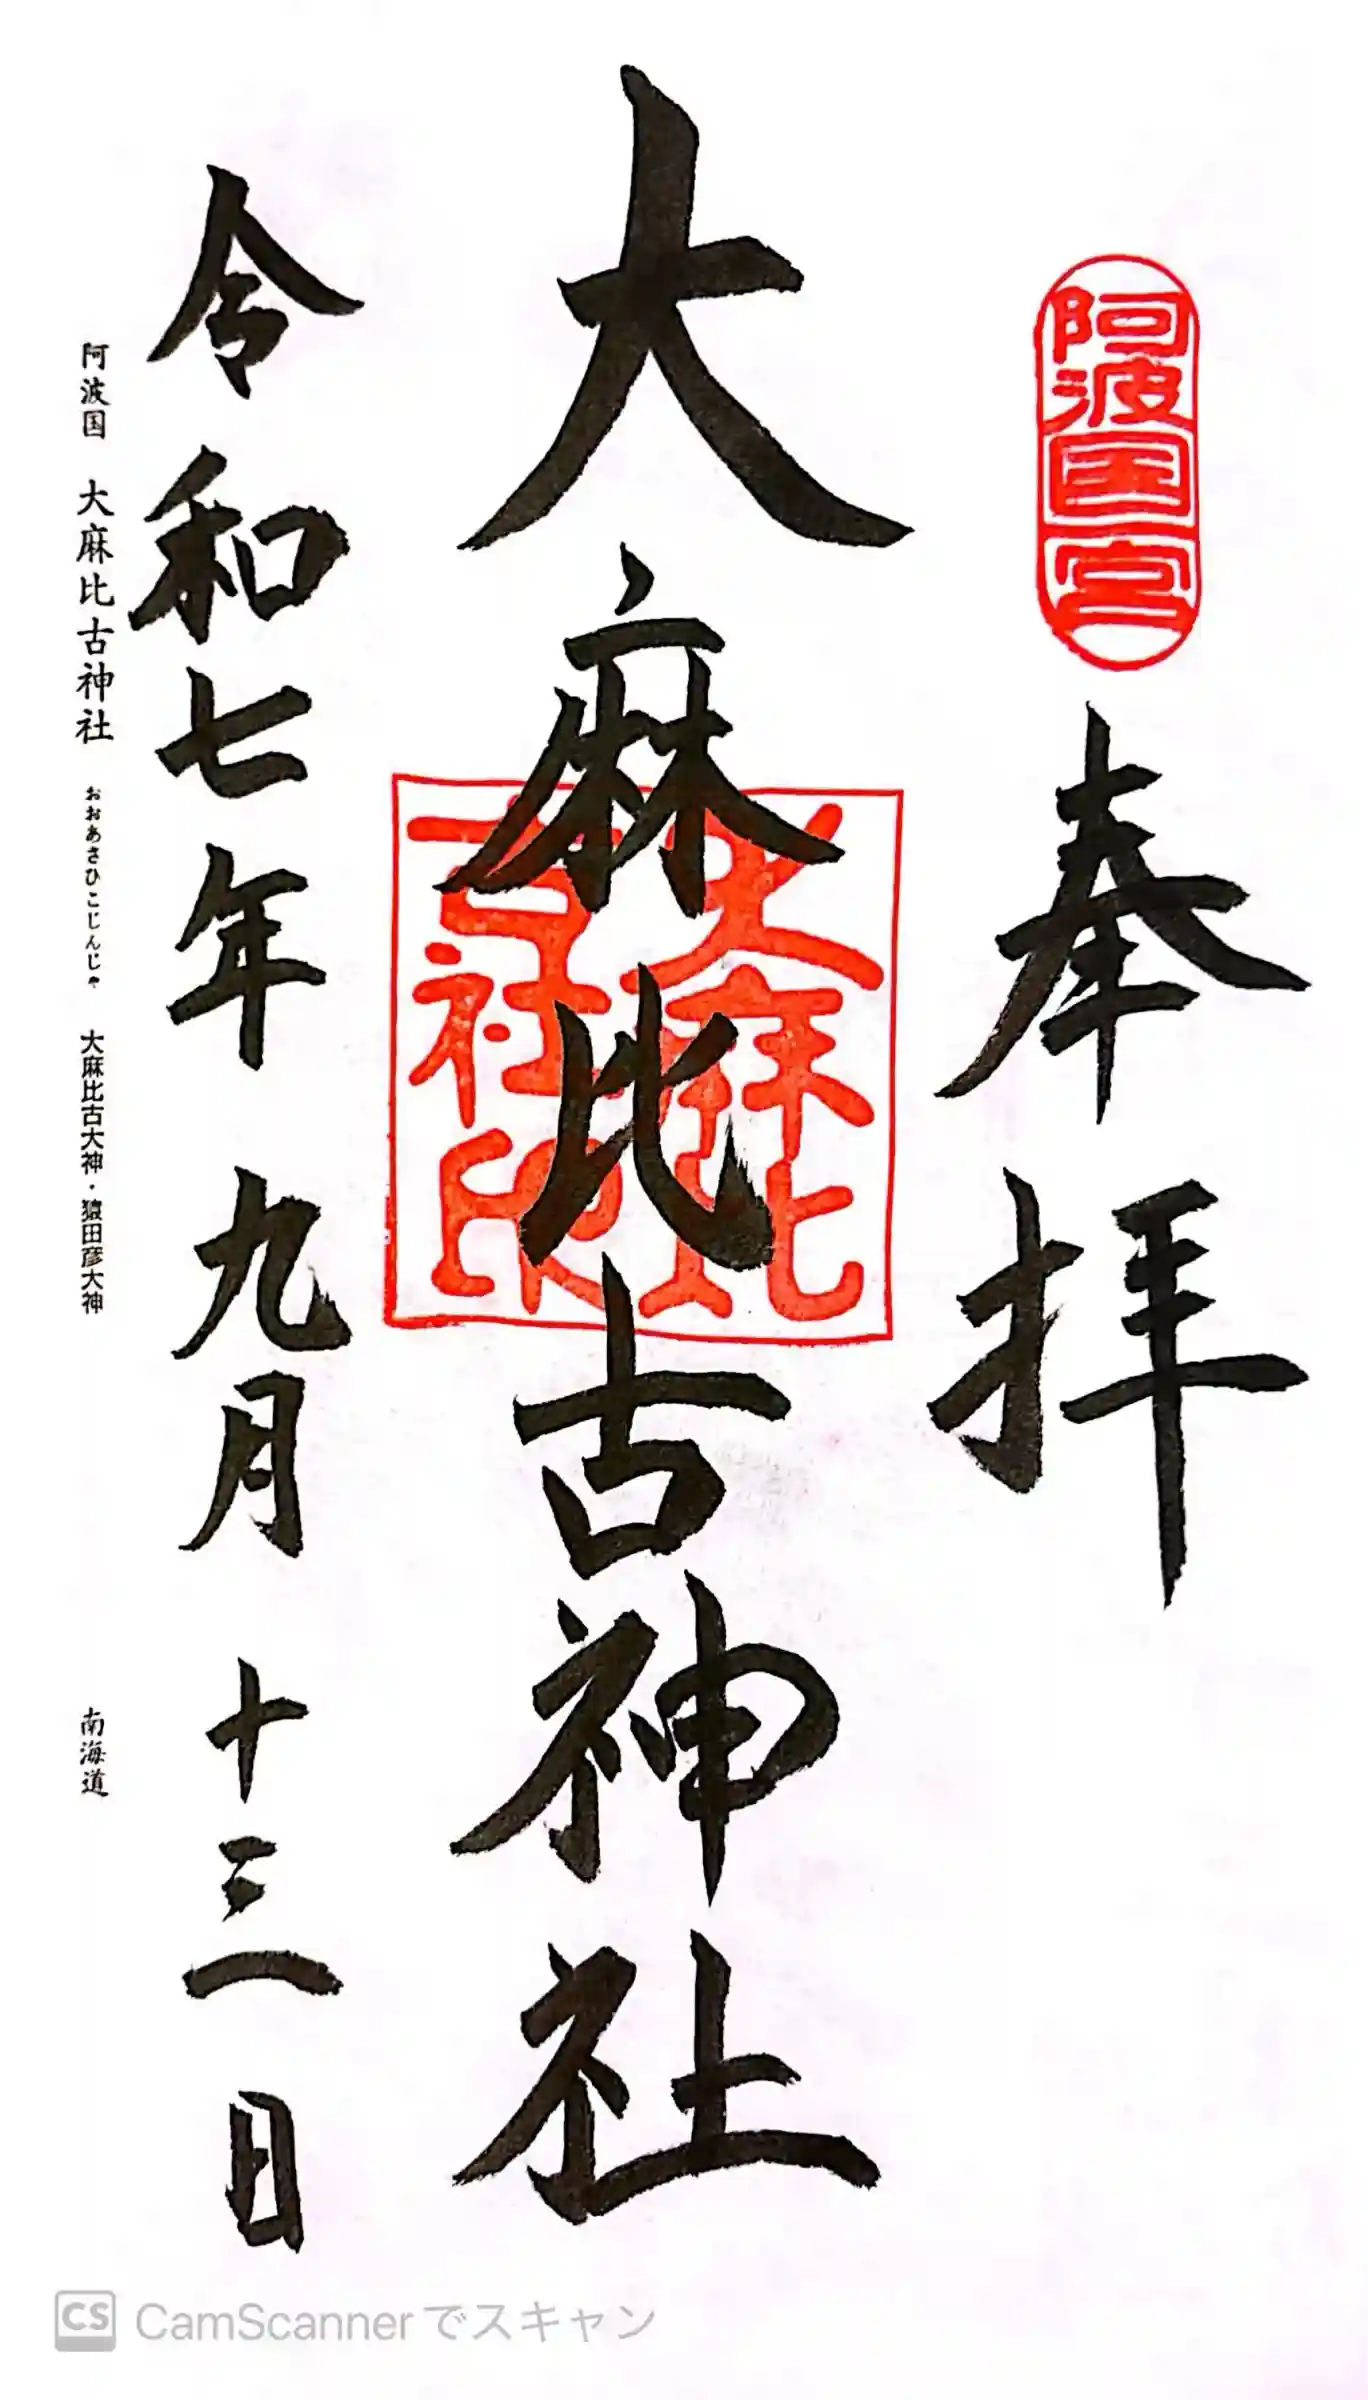 阿波国一宮
奉拝
大麻比古神社
大麻比
古社印
令和七年 九月 十三日
阿波国 大麻比古神社 おおあさひこじんじゃ 大麻比古大神・猿田彦大神 南海道
CS CamScannerでスキャン